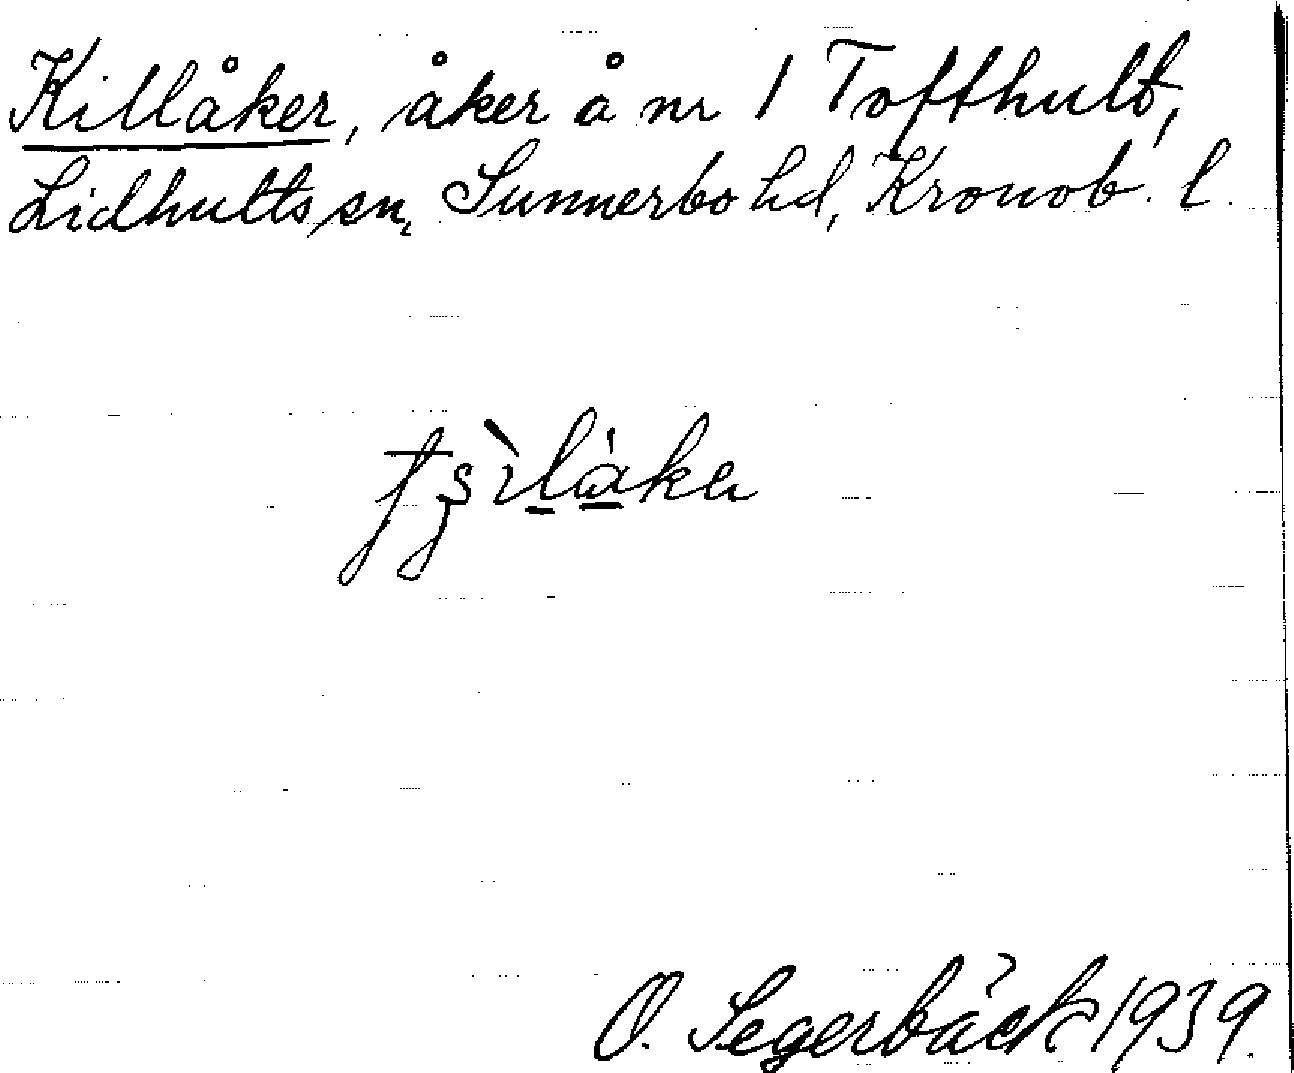 Killåker, åker å nr 1 Tofthult,
Lidhults sn, Sunnerbo hd, Kronob. l.
O. Segerbäck 1939.